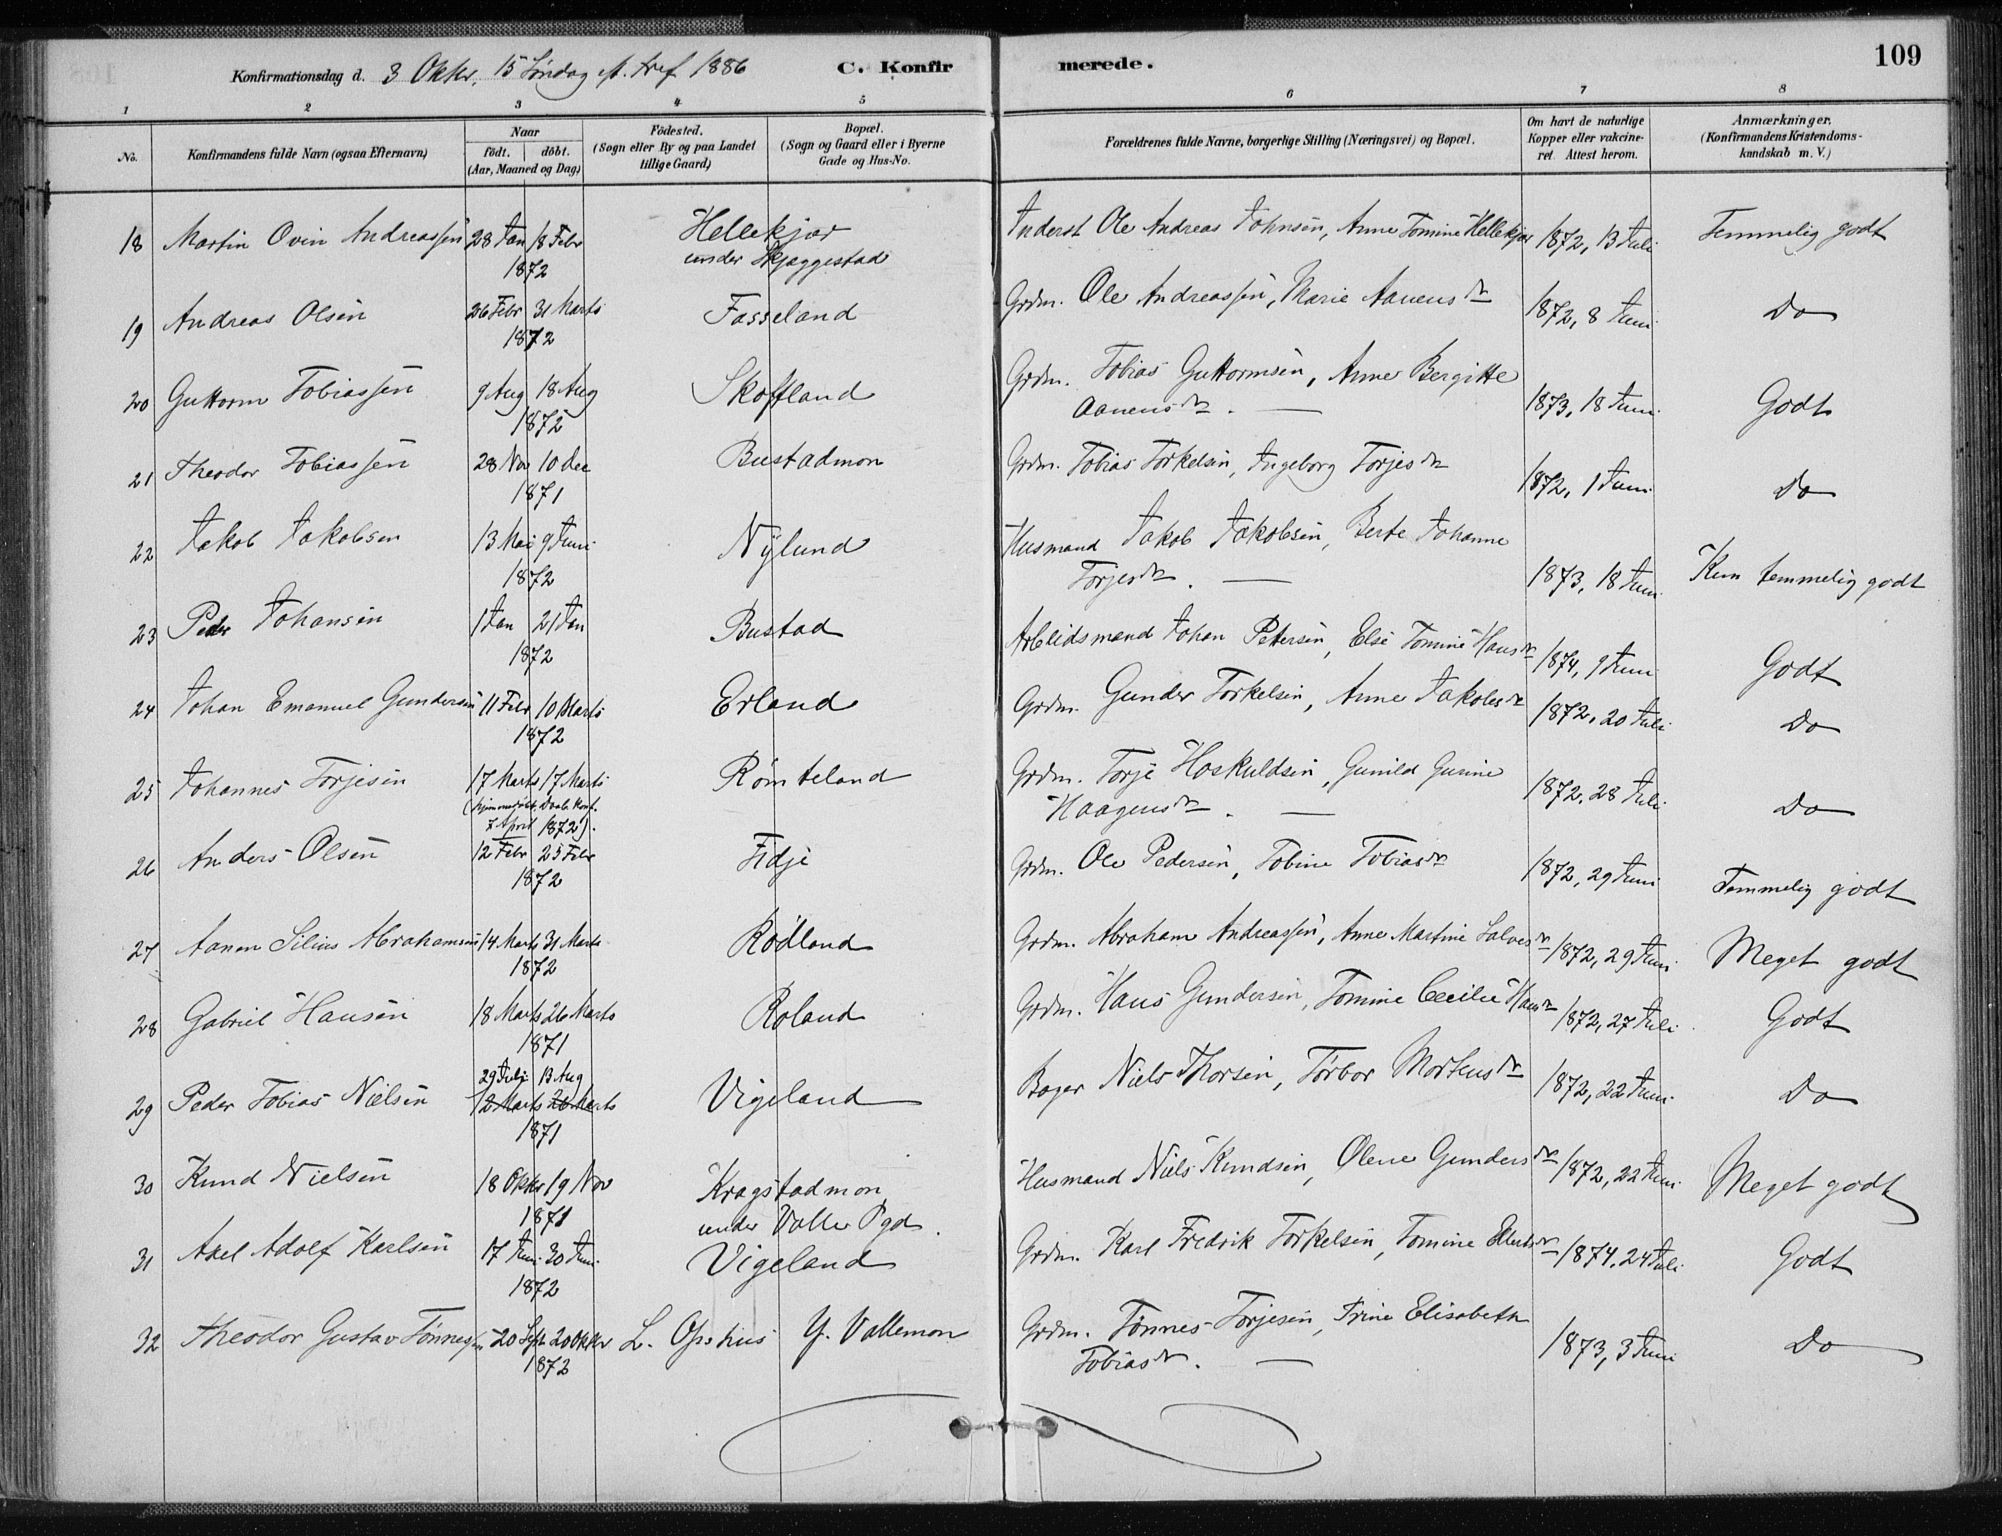 109
Konfirmationsdag d. 3 Oktbr. 15 Søndag eft. Tref 1886 C. Konfirmerede.
1 2 3 4 5 6 7 8
No. Konfirmandens fulde Navn (ogsaa Efternavn) Naar født. døbt. (Aar, Maaned og Dag) Fødested. (Sogn eller By og paa Landet tillige Gaard) Bopæl. (Sogn og Gaard eller i Byerne Gade og Hus-No. Forældrenes fulde Navne, borgerlige Stilling (Næringsvei) og Bopæl. Om havt de naturlige Kopper eller vakcineret. Attest herom. Anmærkninger. (Konfirmandens Kristendomskundskab m. V.)
18 Martin Ovin Andreassen 28 Jan 18 Febr 1872 Hellekjær under Skjæggestad Inderst Ole Andreas Johnsen, Anne Tomine Hellekjær 1872, 13 Juli Temmelig godt
19 Andreas Olsen 26 Febr 31 Marts 1872 Fasseland Grdm. Ole Andreassen, Marie Aanensdr 1872, 8 Juni Do
20 Guttorm Tobiassen 9 Aug 18 Aug 1872 Skofland Grdm. Tobias Guttormsen, Anne Bergitte Aanensdr. — 1873, 18 Juni Godt
21 Theodor Tobiassen 28 Nov 10 Dec 1871 Bustadmon Grdm. Tobias Torkelsen, Ingeborg Torjesdr 1872, 1 Juni Do
22 Jakob Jakobsen 13 Mai 9 Juni 1872 Nylund Husmand Jakob Jakobsen, Berte Johanne Torjesdr. — 1873, 18 Juni Kun temmelig godt
23 Peder Johansen 1 Jan 21 Jan 1872 Bustad Arbeidsmand Johan Petersen, Else Tomine Hansdr 1874, 9 Juni Godt
24 Johan Emanuel Gundersen 11 Febr 10 Marts 1872 Erland Grdm. Gunder Torkelsen, Anne Jakobsdr 1872, 20 Juli Do
25 Johannes Torjesen 17 Marts 17 Marts (hjemmedøbt, Daab. Konf. 7 April 1872). Rømteland Grdm. Torje Hoskuldsen, Gunild Gurine Haagensdr. — 1872, 28 Juli Do
26 Anders Olsen 12 Febr 25 Febr 1872 Fidje Grdm. Ole Pedersen, Tobine Tobiasdr 1872, 29 Juni Temmelig godt
27 Aanen Silius Abrahamsen 14 Marts 31 Marts 1872 Rødland Grdm. Abraham Andreassen, Anne Martine Salvesdr 1872, 29 Juni Meget godt
28 Gabriel Hansen 18 Marts 26 Marts 1871 Roland Grdm. Hans Gundersen, Tomine Cecilie Hansdr 1872, 27 Juli Godt
29 Peder Tobias Nielsen 29 Juli 13 Aug 12 Marts 26 Marts 1871 Vigeland Bager Niels Thorsen, Torbor Mortensdr 1872, 22 Juni Do
30 Knud Nielsen 18 Oktbr 19 Nov 1871 Kragstadmon under Valle Pgd. Husmand Niels Knudsen, Olene Gundersdr 1872, 22 Juni Meget godt
31 Axel Adolf Karlsen 17 Juni 30 Juni 1872 Vigeland Grdm. Karl Fredrik Torkelsen, Tomine Ellertsdr 1874, 24 Juli Godt
32 Theodor Gustav Tønnessen 20 Septr 20 Oktbr 1872 L. Opshus Y. Vallemon Grdm. Tønnes Torjesen, Trine Elisabeth Tobiasdr. — 1873, 3 Juni Do